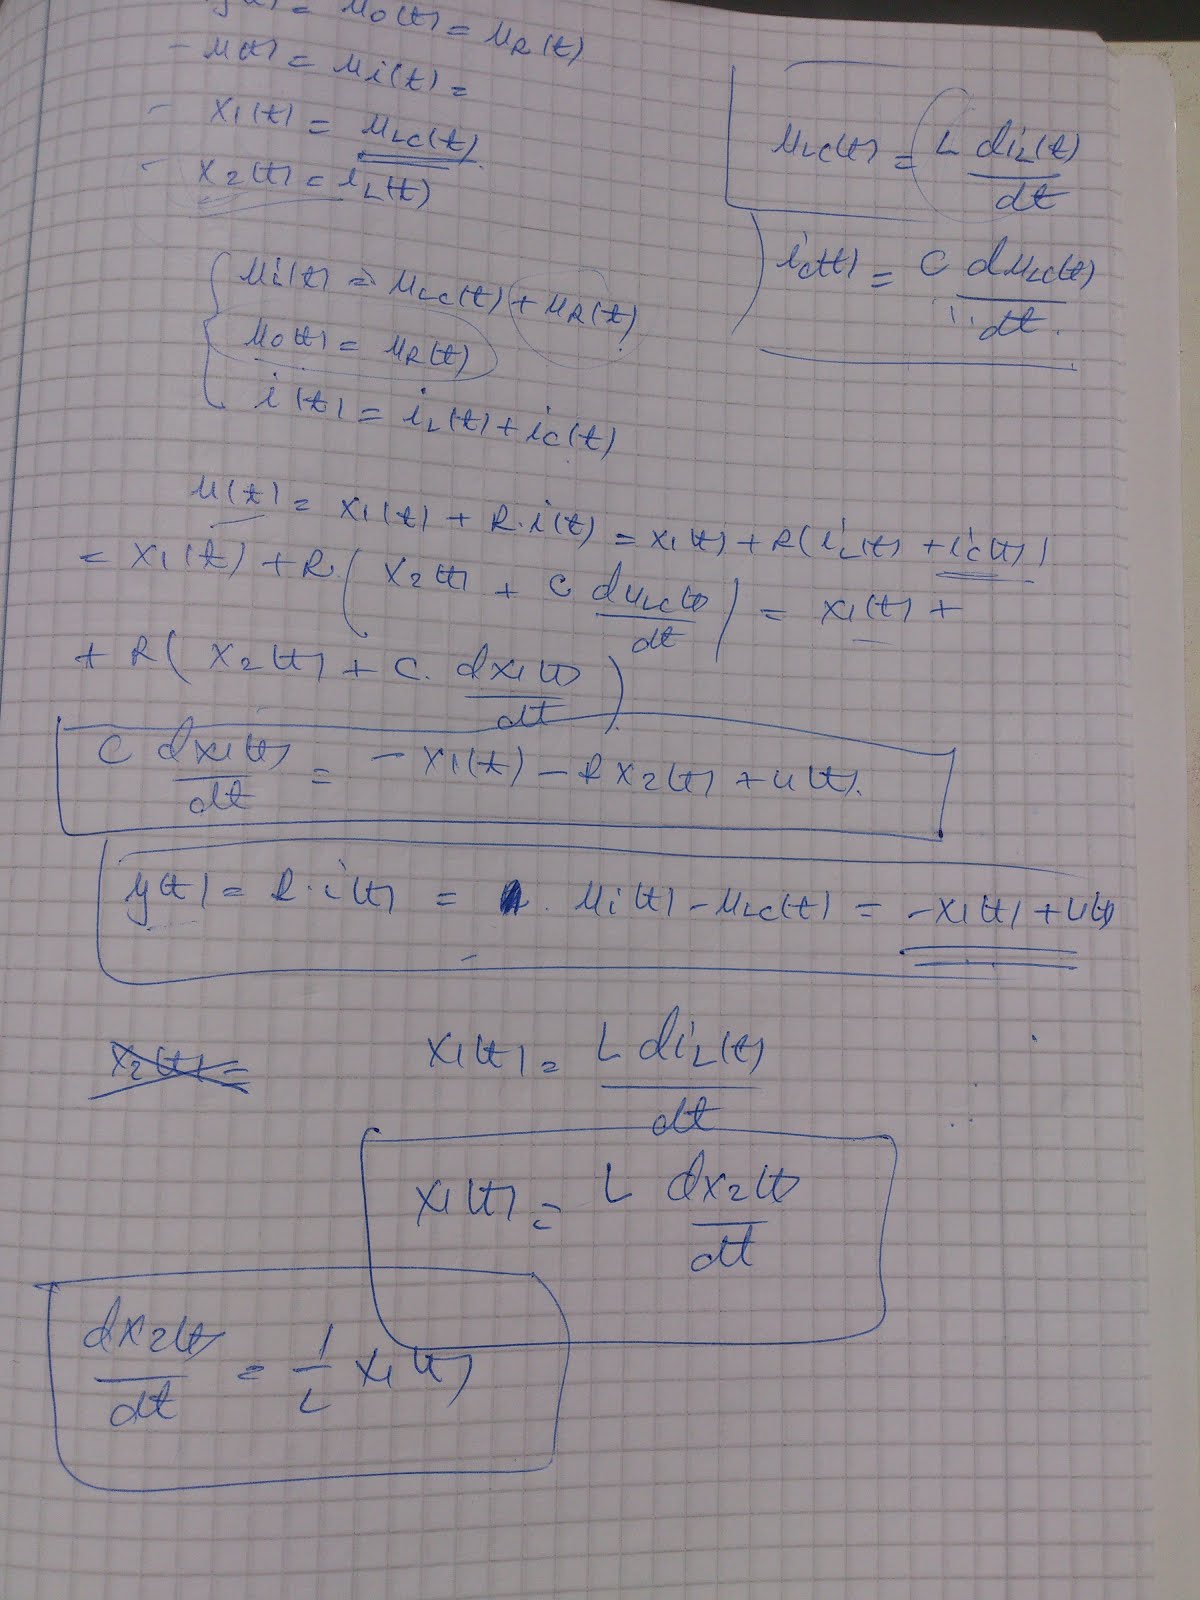 y(t) = u₀(t) = u_R(t)
- u(t) = u_i(t) =
- x₁(t) = u_LC(t)
- x₂(t) = i_L(t)
u_LC(t) = L di_L(t)/dt
i_C(t) = C du_LC(t)/dt.
u_i(t) = u_LC(t) + u_R(t)
u₀(t) = u_R(t)
i(t) = i_L(t) + i_C(t)
u(t) = x₁(t) + R·i(t) = x₁(t) + R(i_L(t) + i_C(t))
= x₁(t) + R·(x₂(t) + C du_LC(t)/dt) = x₁(t) +
+ R(x₂(t) + C. dx₁(t)/dt)
C dx₁(t)/dt = -x₁(t) - R x₂(t) + u(t).
y(t) = R·i(t) = u_i(t) - u_LC(t) = -x₁(t) + u(t)
x₂(t) =
x₁(t) = L di_L(t)/dt
x₁(t) = L dx₂(t)/dt
dx₂(t)/dt = 1/L x₁(t)